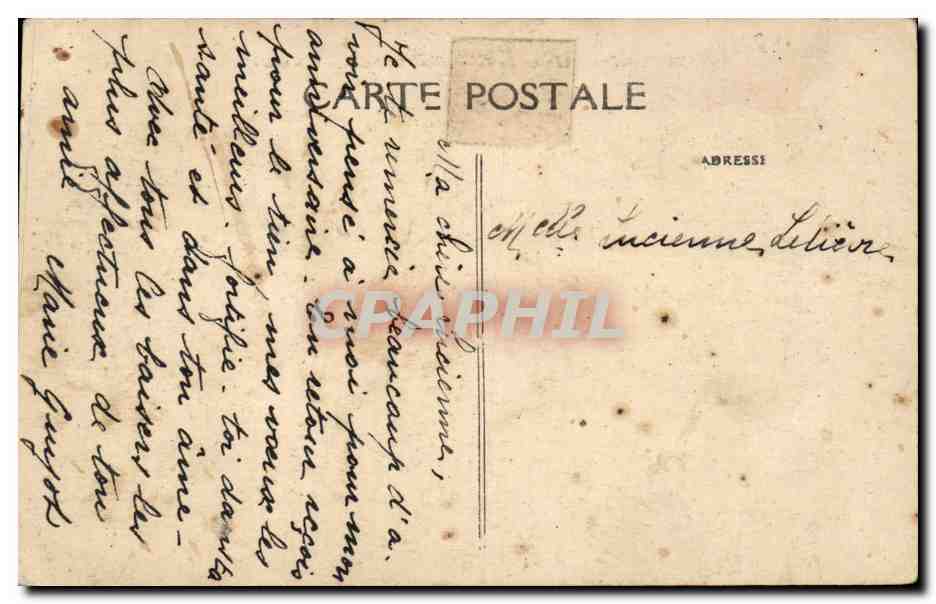 CARTE POSTALE
ADRESSE
Melle Lucienne Lelièvre
Ma chère Lucienne,
Je te remercie beaucoup d'a-
voir pensé à moi pour mon
anniversaire. En retour reçois
pour le tien, mes voeux les
meilleurs. Fortifie-toi dans ta
santé et dans ton âme -
Avec tous les baisers les
plus affectueux de ton
amie
Marie Guyot
CPAPHIL